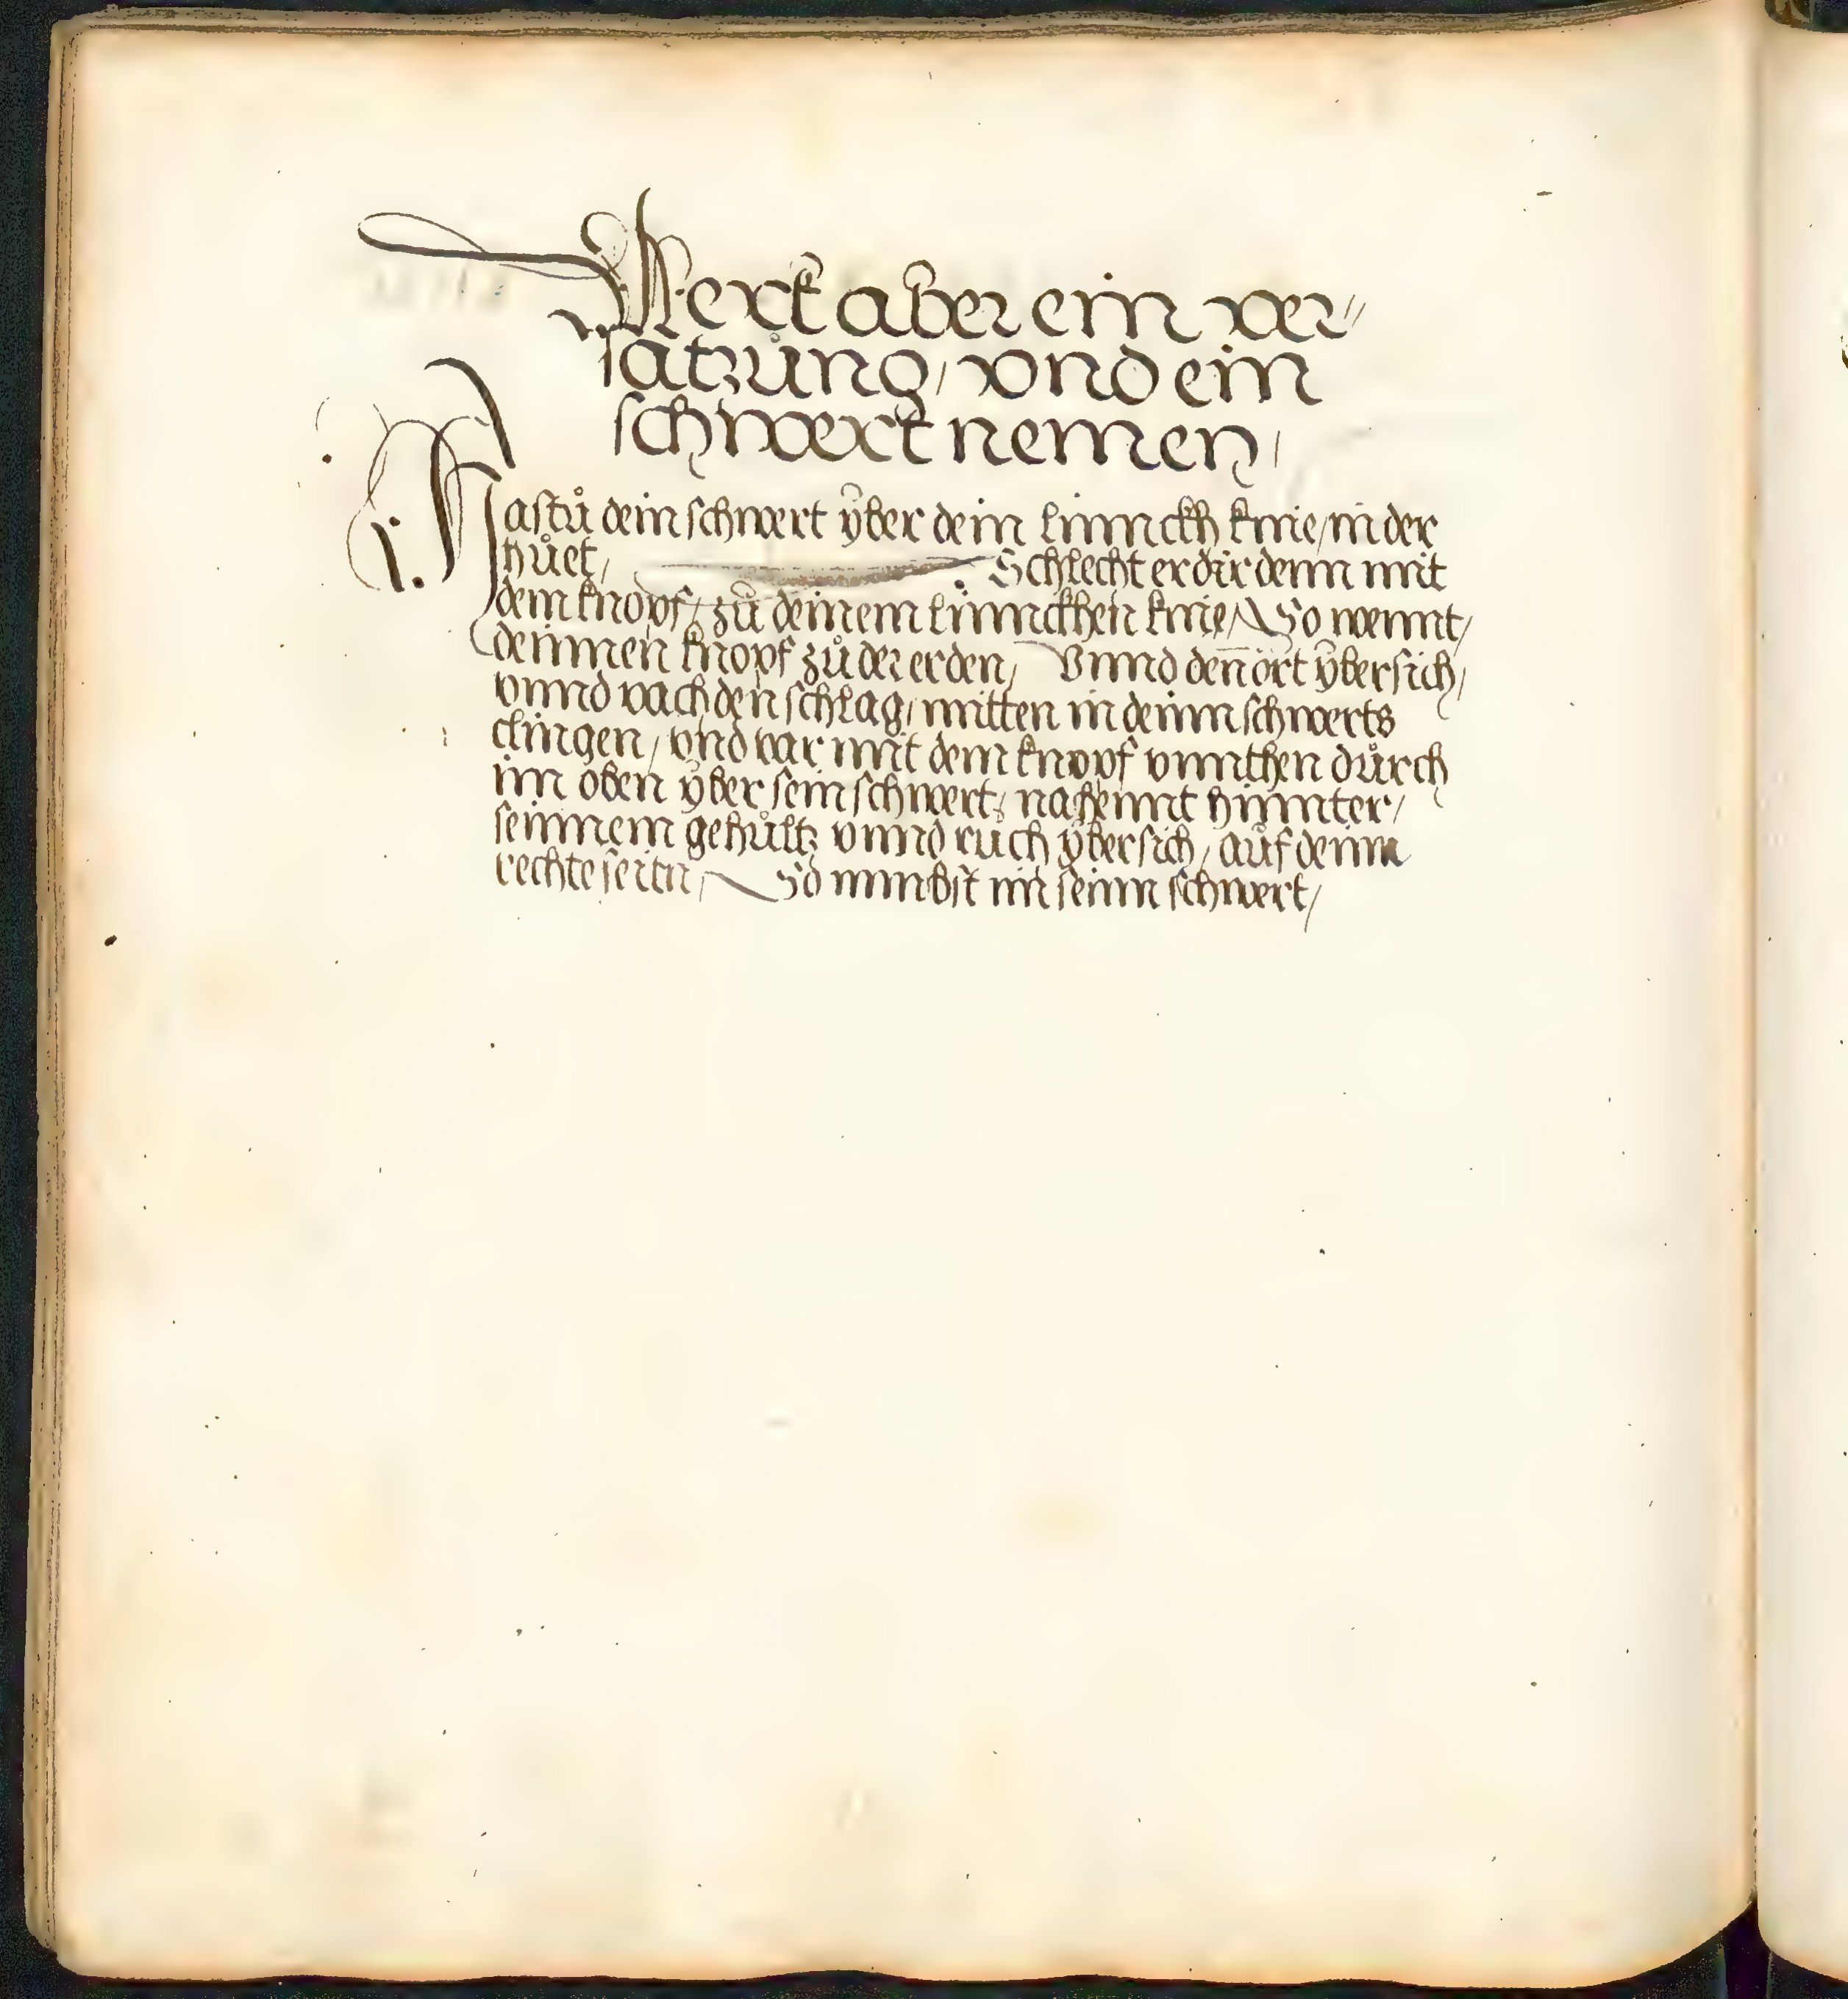 Merk aber ein ver⸗
satzůng, vnd ein
schwert nemen,
Hastů dein schwert ÿber dein linnckh knie, in der
hůet, Schlecht er dir denn mit
dem knopf, zů deinem linnckhen knie, So wennt,
deinnen knopf zů der erden, Vnnd den ort ÿbersich,
vnnd vach den schlag, mitten in deinn schwerts
clingen, vnd var mit dem knopf vnnthen důrch
im oben ÿber sein schwert, nahennt hinnter,
seinnem gehůltz vnnd ruch ÿbersich, aůf deinn
rechte seitn, So nimbst im seinn schwert,